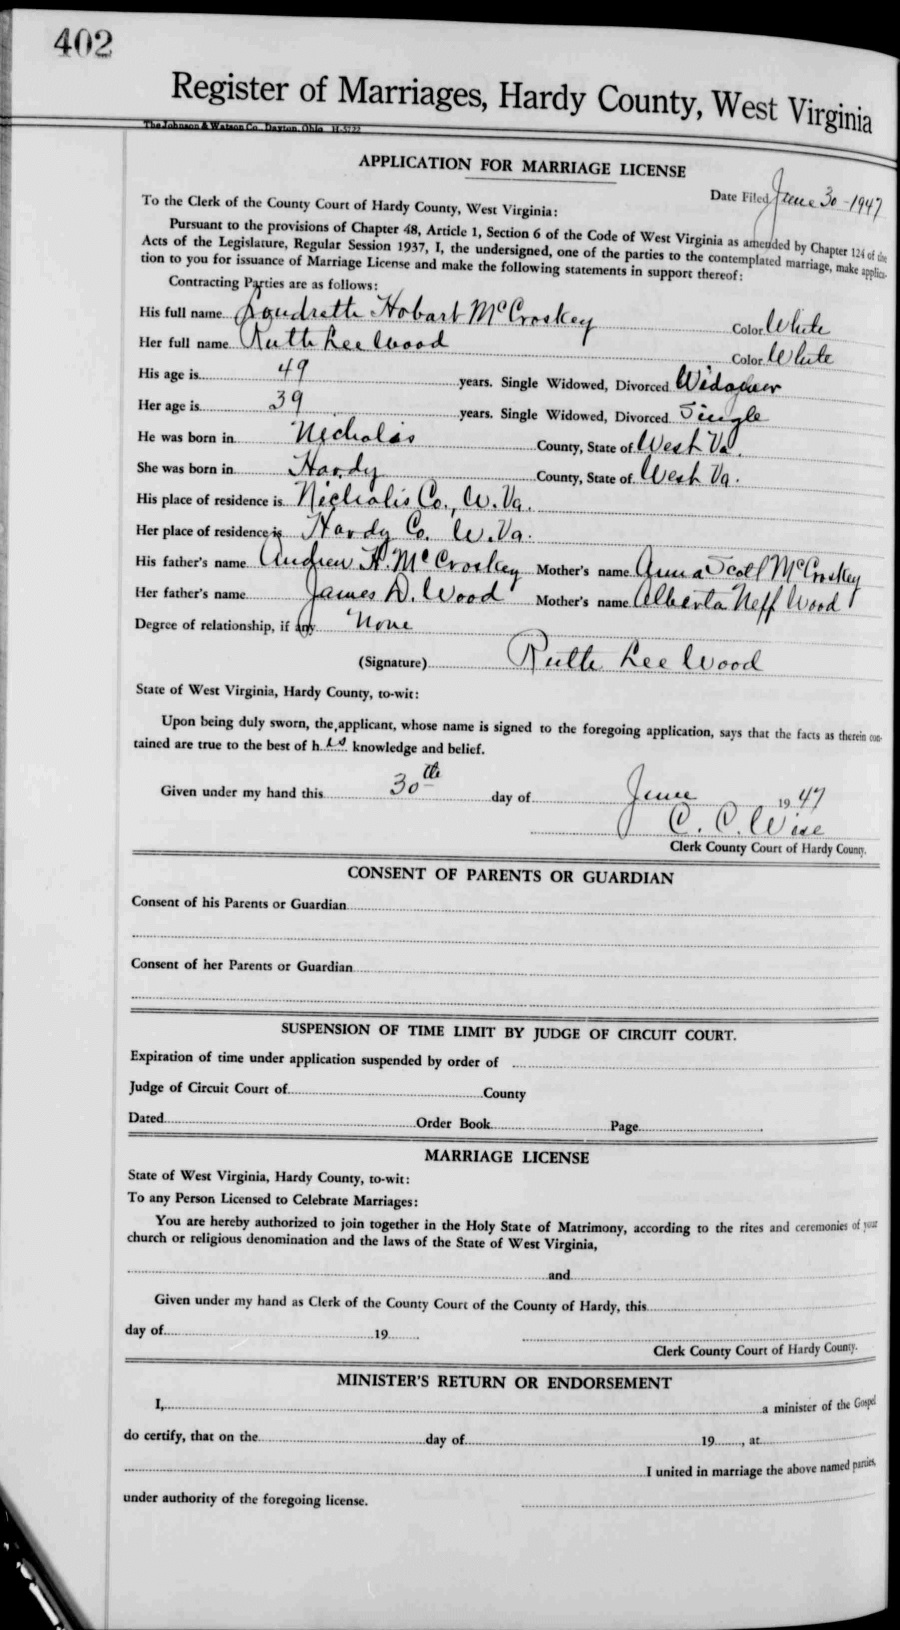 402
Register of Marriages, Hardy County, West Virginia
The Johnson & Watson Co., Dayton, Ohio H-5722
APPLICATION FOR MARRIAGE LICENSE
Date Filed June 30-1947
To the Clerk of the County Court of Hardy County, West Virginia:
Pursuant to the provisions of Chapter 48, Article 1, Section 6 of the Code of West Virginia as amended by Chapter 124 of the
Acts of the Legislature, Regular Session 1937, I, the undersigned, one of the parties to the contemplated marriage, make applica-
tion to you for issuance of Marriage License and make the following statements in support thereof:
Contracting Parties are as follows:
His full name Hobart McCroskey Color White
Her full name Ruth Lee Wood Color White
His age is 49 years. Single Widowed, Divorced Widower
Her age is 39 years. Single Widowed, Divorced Single
He was born in Nicholas County, State of West Va.
She was born in Hardy County, State of West Va.
His place of residence is Nicholis Co., W. Va.
Her place of residence is Hardy Co. W. Va.
His father's name Andrew H. McCroskey Mother's name Anna Scott McCroskey
Her father's name James D. Wood Mother's name Alberta Neff Wood
Degree of relationship, if any None
(Signature) Ruth Lee Wood
State of West Virginia, Hardy County, to-wit:
Upon being duly sworn, the applicant, whose name is signed to the foregoing application, says that the facts as therein con-
tained are true to the best of h knowledge and belief.
Given under my hand this 30th day of June 1947
C. C. Wise
Clerk County Court of Hardy County.
CONSENT OF PARENTS OR GUARDIAN
Consent of his Parents or Guardian
Consent of her Parents or Guardian
SUSPENSION OF TIME LIMIT BY JUDGE OF CIRCUIT COURT.
Expiration of time under application suspended by order of
Judge of Circuit Court of County
Dated Order Book Page
MARRIAGE LICENSE
State of West Virginia, Hardy County, to-wit:
To any Person Licensed to Celebrate Marriages:
You are hereby authorized to join together in the Holy State of Matrimony, according to the rites and ceremonies of your
church or religious denomination and the laws of the State of West Virginia,
and
Given under my hand as Clerk of the County Court of the County of Hardy, this
day of 19
Clerk County Court of Hardy County.
MINISTER'S RETURN OR ENDORSEMENT
I, a minister of the Gospel
do certify, that on the day of 19, at
I united in marriage the above named parties,
under authority of the foregoing license.